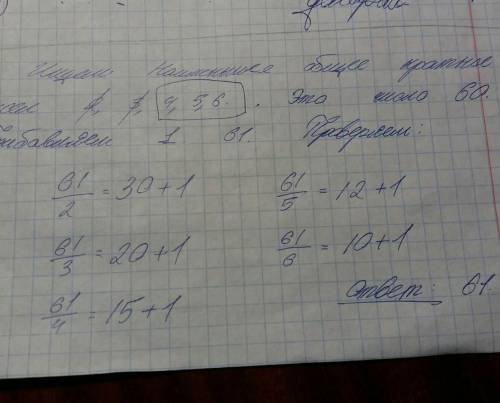 Ищем Наименьшее общее кратное
2, 3, 4, 5, 6. Это число 60.
1 61. Проверяем:
61/2 = 30+1 61/5 = 12+1
61/3 = 20+1 61/6 = 10+1
61/4 = 15+1 Ответ: 61.